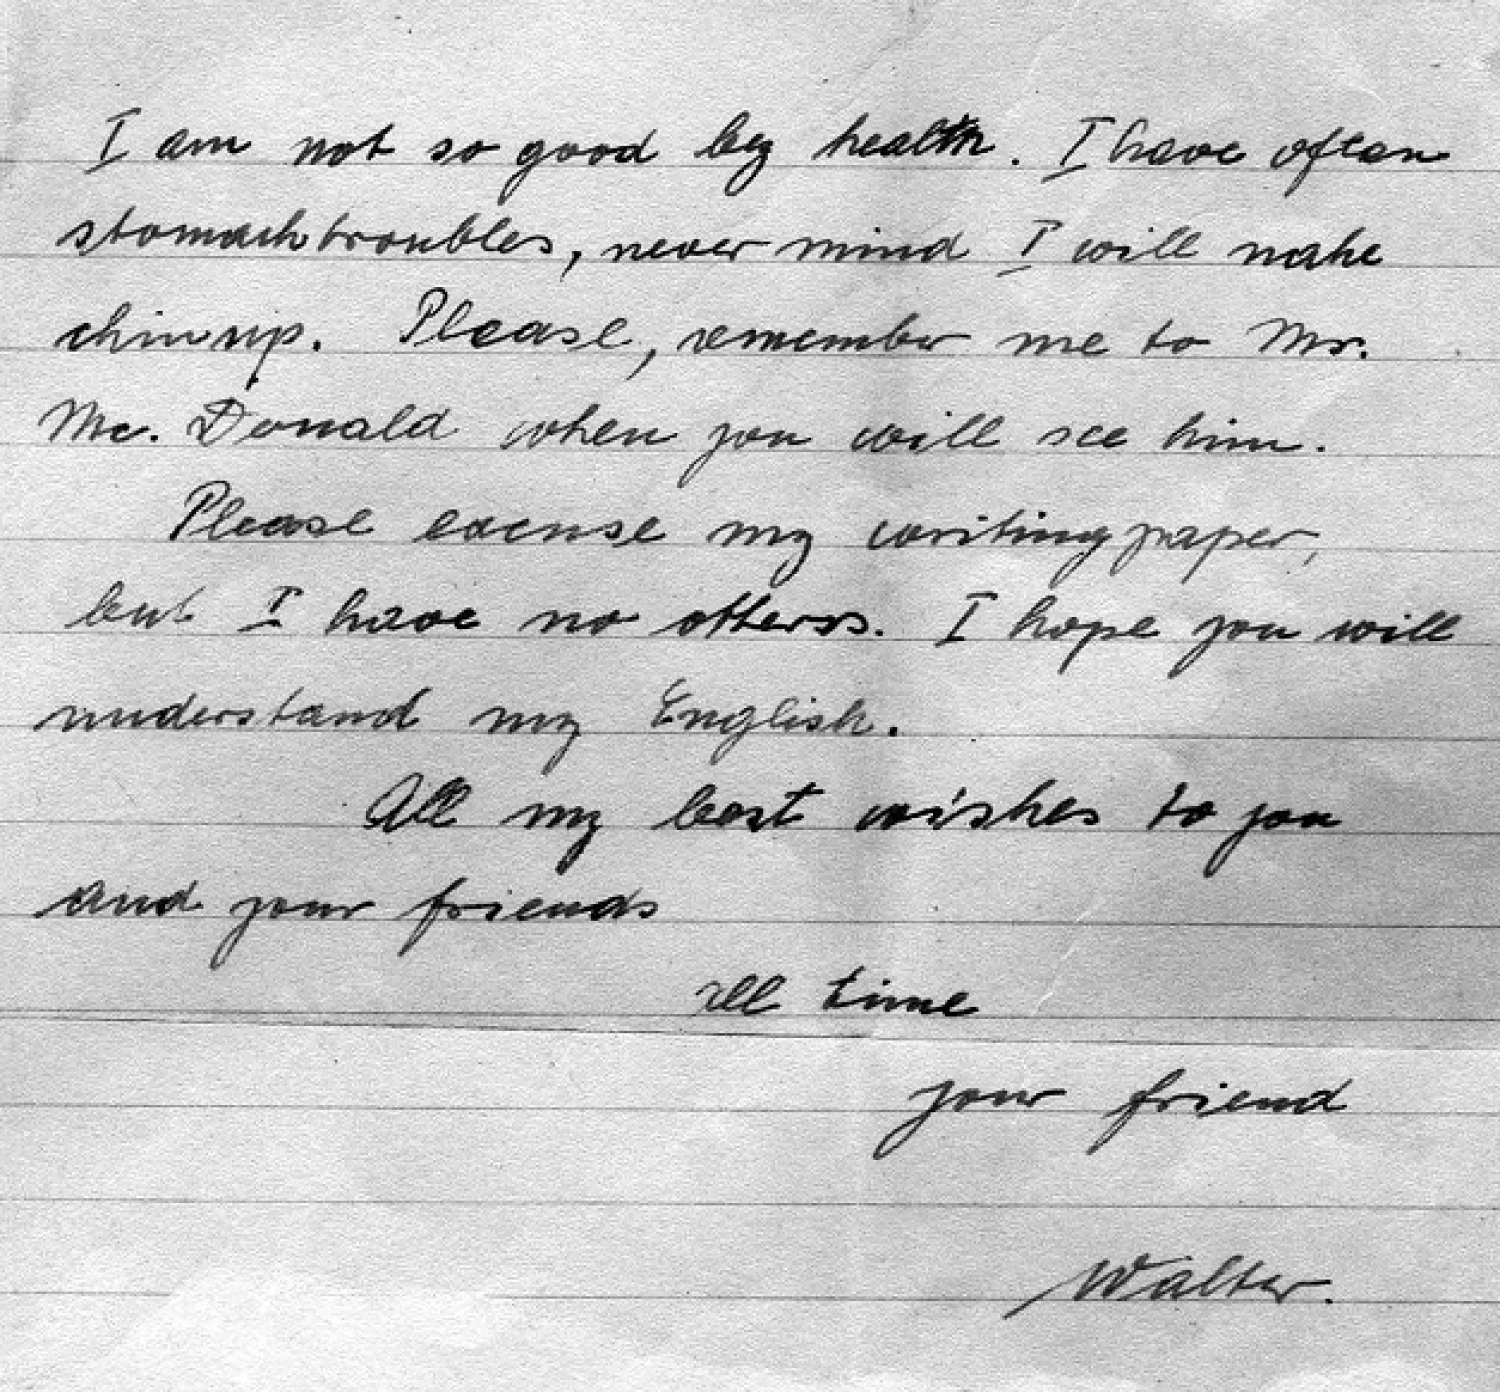 I am not so good by health. I have often
stomachtroubles, never mind I will make
chin up. Please, remember me to Mr.
Mc. Donald when you will see him.
Please excuse my writingpaper,
but I have no otherss. I hope you will
understand my English.
All my best wishes to you
and your friends
all time
your friend
Walter.